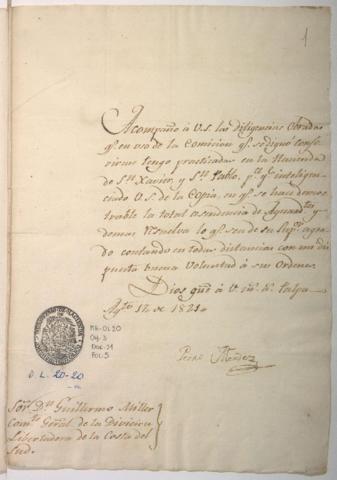 1
Acompaño á V.S. las diligencias Obradas
qe. en uso de la Comicion qe. se dignó confe
rirme tengo practicadas en la Hacienda
de Sn. Xavier, y Sn. Pablo, pa. qe. inteligen
ciado V.S. de la Copia, en qe. se hace demos
trable la total asendencia de Aguardtes. y
demas resuelva lo qe. sea de su supr. agra
do contando en todas distancias con mi dis
puesta buena Voluntad á sus Ordenes.
Dios gue. á V.S. ms. as. Palpa
Agto. 12 de 1821
Pedro Mendez
MH-OL20
Caj. 3
Doc. 31
Fol. 5
O. L. 20-20
Sor. Dn. Guillermo Miller
Comte. Genal. de la Divicion
Libertadora de la Costa del
Sud.